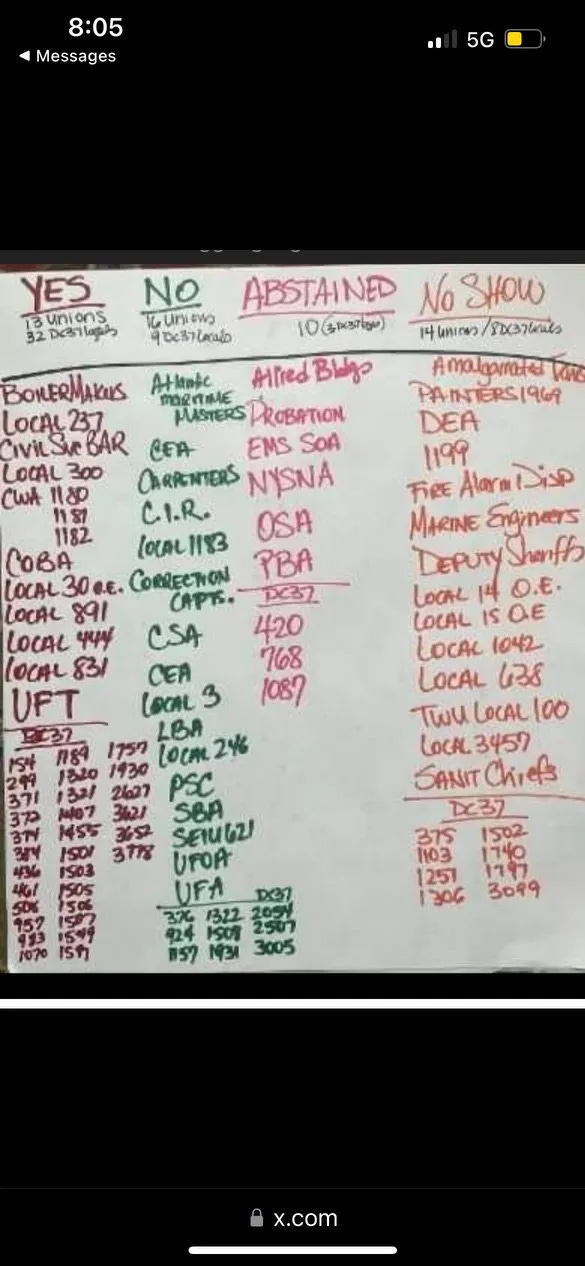 8:05
5G
◄ Messages
YES
13 UNIONS
32 DC37 locals
BOILERMAKERS
LOCAL 237
CIVIL Svc BAR
LOCAL 300
CWA 1180
1181
1182
COBA
LOCAL 30 O.E.
LOCAL 891
LOCAL 444
LOCAL 831
UFT
DC37
154 1189 1757
299 1320 1930
371 1321 2627
372 1407 3621
374 1455 3652
384 1501 3778
436 1503
461 1505
508 1506
957 1507
983 1549
1070
NO
16 Unions
9 DC37 Locals
Atlantic
MARITIME
MASTERS
CEA
CARPENTERS
C.I.R.
LOCAL 1183
CORRECTION
CAPTS.
CSA
CEA
LOCAL 3
LBA
LOCAL 246
PSC
SBA
SEIU 621
UFOA
UFA
DC37
376 1322 2054
924 1508 2507
1157 1931 3005
ABSTAINED
10 (3 DC37
Allied Bldgs
PROBATION
EMS SOA
NYSNA
OSA
PBA
DC37
420
768
1087
No SHOW
14 Unions/8 DC37 Locals
Amalgamated
PAINTERS 1969
DEA
1199
FIRE Alarm Disp
MARINE Engineers
DEPUTY Sheriffs
LOCAL 14 O.E.
LOCAL 15 O.E
LOCAL 1042
LOCAL 638
TWU LOCAL 100
LOCAL 3457
SANIT Chiefs
DC37
375 1502
1103 1740
1251 1797
1306 3099
x.com